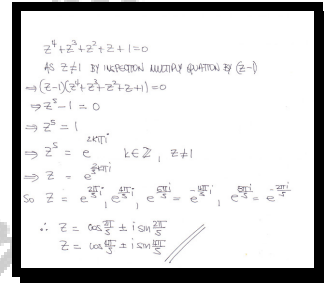 z⁴+z³+z²+z+1=0
AS z≠1 BY INSPECTION MULTIPLY EQUATION BY (z-1)
⇒(z-1)(z⁴+z³+z²+z+1)=0
⇒z⁵-1=0
⇒z⁵=1
⇒z⁵=e^{2kπi} k∈ℤ, z≠1
⇒z=e^{2/5kπi}
So z=e^{2πi/5}, e^{4πi/5}, e^{6πi/5}=e^{-4πi/5}, e^{8πi/5}=e^{-2πi/5}
∴ z=cos2π/5 ± i sin2π/5
z=cos4π/5 ± i sin4π/5